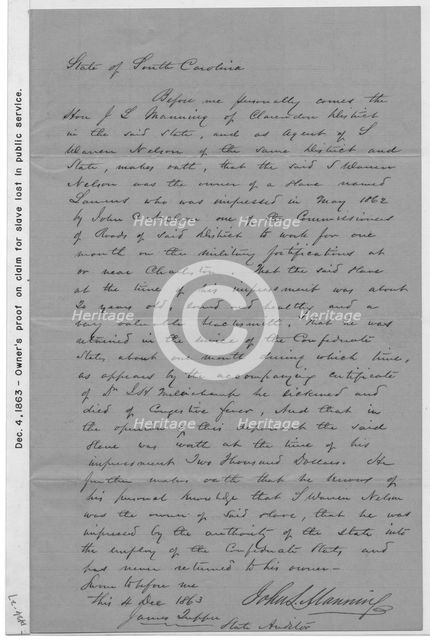 State of South Carolina
Before me personally comes the
Hon J L Manning of Clarendon District
in the said State, and as Agent of S
Warren Nelson of the same District and
State, makes oath, that the said S Warren
Nelson was the owner of a slave named
who was impressed in May 1862
by John C one of the Commissioners
of Roads of said District to work for one
month on the Military fortifications at
or near Charleston. That the said slave
at the time of his impressment was about
20 years old, sound and healthy and a
very valuable blacksmith. That he was
retained in the service of the Confederate
States about one month during which time,
as appears by the accompanying certificate
of Dr he sickened and
died of Congestive fever, And that in
the opinion of this deponent the said
Slave was worth at the time of his
impressment Two Thousand Dollars. He
further makes oath that he knows of
his personal knowledge that S Warren Nelson
was the owner of said slave, that he was
impressed by the authority of the State into
the employ of the Confederate States, and
has never returned to his owner—
Sworn to before me
this 4 Dec 1863
John L Manning
James Tupper
State Auditor
Dec. 4, 1863 - Owner's proof on claim for slave lost in public service.
Heritage
Heritage
Heritage
Heritage
Heritage
Heritage
C